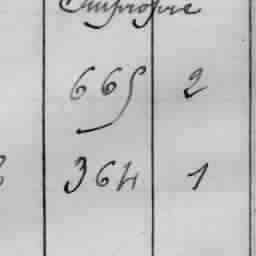 Impropre
665 2
364 1